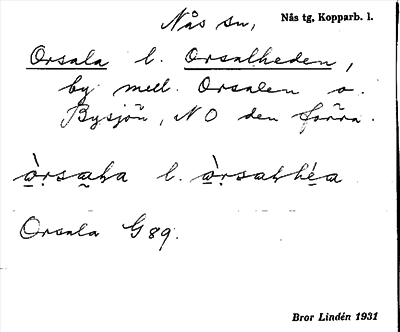 Nås sn,
Nås tg, Kopparb. l.
Orsala l. Orsalheden,
by mell. Orsalen o.
Bysjön, NO den förra.
l.
Orsala G89.
Bror Lindén 1931